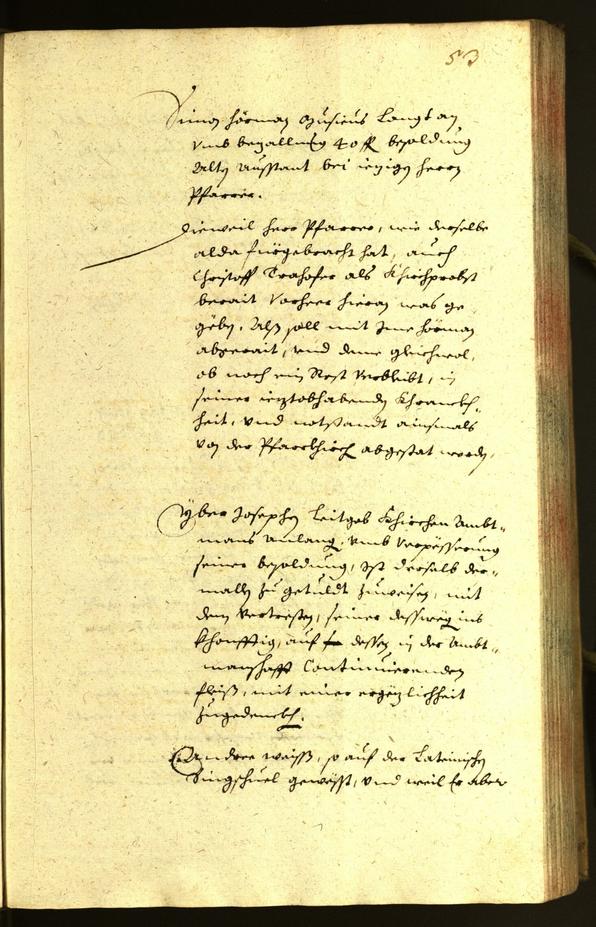 53
Simon Hörman Musicus Langt an
umb bezallung 40 fl besoldung
Alten ausstant bei iezigen herrn
Pfarrer.
Dieweil herr Pfarrer, wie derselbe
alda fürgebracht hat, auch
Christoff Trahofer als Khirchprobst
berait vorheer hieran was ge
geben, Alß soll mit Ime Hörman
abgerait, und deme gleichwol,
ob noch ein Rest verbleibt, in
seiner ieztobhabenden Khranckh-
heit, und notstandt ainsmals
von der Pfarrkhirch abgestat werden.
Yber Josephen Leitgeb Khirchen Ambt-
mans Anlang, umb verpösserung
seiner besoldung, Ist derselb der-
malen zu getuldt zuweisen, mit
dem vertresten, seiner desswegen ins
khonfftig, auf dessen in der Ambt-
manschafft Continuierenden
fleiß, mit einer ergezlichheit
zugedenckhen.
Andree Waiss, so auf der Lateinischen
Singschuel gewesst, und weil Er aber